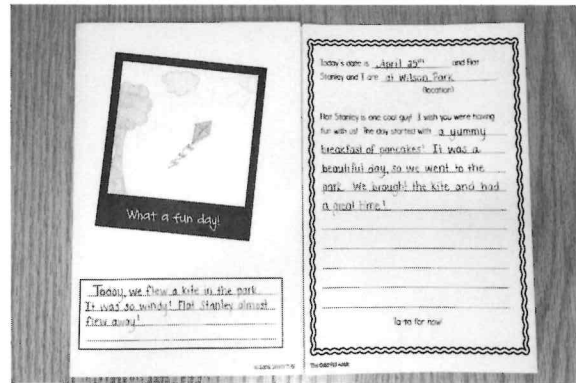 What a fun day!
Today, we flew a kite in the park.
It was so windy! Flat Stanley almost
flew away!
Today's date is April 25th and Flat
Stanley and I are at Wilson Park
(location)
Flat Stanley is one cool guy! I wish you were having
fun with us! The day started with a yummy
breakfast of pancakes! It was a
beautiful day, so we went to the
park. We brought the kite and had
a great time!
Ta-ta for now